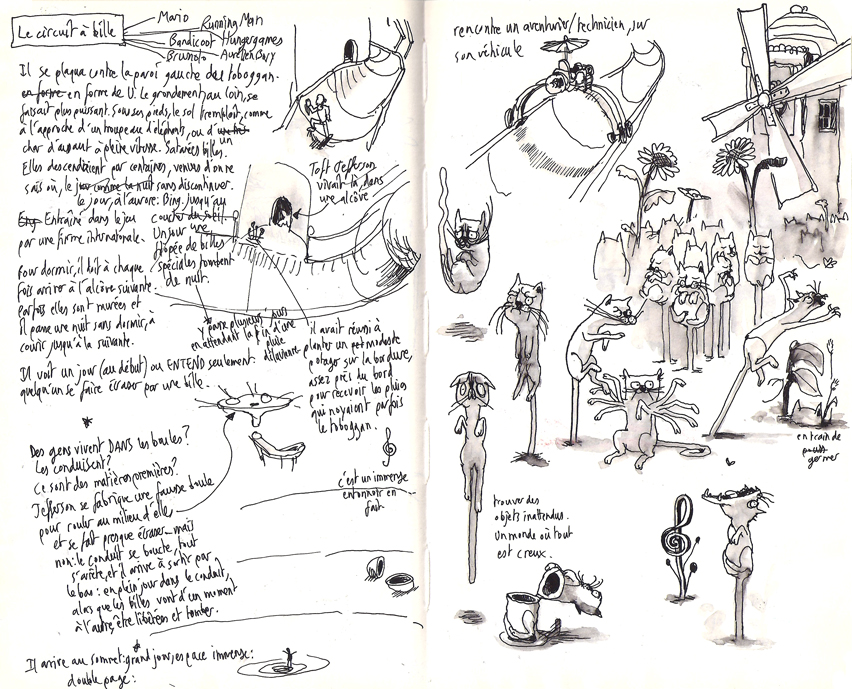 Le circuit à bille
Mario
Running Man
Bandicoot Hungergames
Brunoto Aurélien Bory
Il se plaqua contre la paroi gauche du toboggan
en forme en forme de U. Le grondement au loin, se
faisait plus puissant. Sous ses pieds, le sol tremblait, comme
à l'approche d'un troupeau d'éléphants, ou d'un
char d'assaut à pleine vitesse. Satanées billes.
Elles descendaient par centaines, venues d'on ne
sait où, le jour comme la nuit sans discontinuer.
le jour, à l'aurore: Bing, jusqu'au
coucher du soleil.
Entraîné dans le jeu
par une firme internationale.
Un jour une
flopée de billes
spéciales tombent
de nuit.
Toft Jefferson
vivait là, dans
une alcôve
Pour dormir, il doit à chaque
fois arriver à l'alcôve suivante.
parfois elles sont murées et
il passe une nuit sans dormir, à
courir jusqu'à la suivante.
y passe plusieurs jours
en attendant la fin d'une
pluie
diluvienne
il avait réussi à
planter un petit modeste
potager sur la bordure,
assez près du bord
pour recevoir les pluies
qui noyaient parfois
le toboggan.
Il voit un jour (au début) ou ENTEND seulement
quelqu'un se faire écraser par une bille.
Des gens vivent DANS les boules?
Les conduisent?
Ce sont des matières premières?
Jefferson se fabrique une fausse boule
pour rouler au milieu d'elles
et se fait presque écraser mais
non: le conduit se bouche, tout
s'arrête, et il arrive à sortir par
le bas: en plein jour dans le conduit,
alors que les billes vont d'un moment
à l'autre être libérées et tomber.
c'est un immense
entonnoir en
fait
Il arrive au sommet: grand jour, espace immense:
double page:
rencontre un aventurier/technicien, sur
son véhicule
en train de
pousser
germer
trouver des
objets inattendus.
Un monde où tout
est creux.